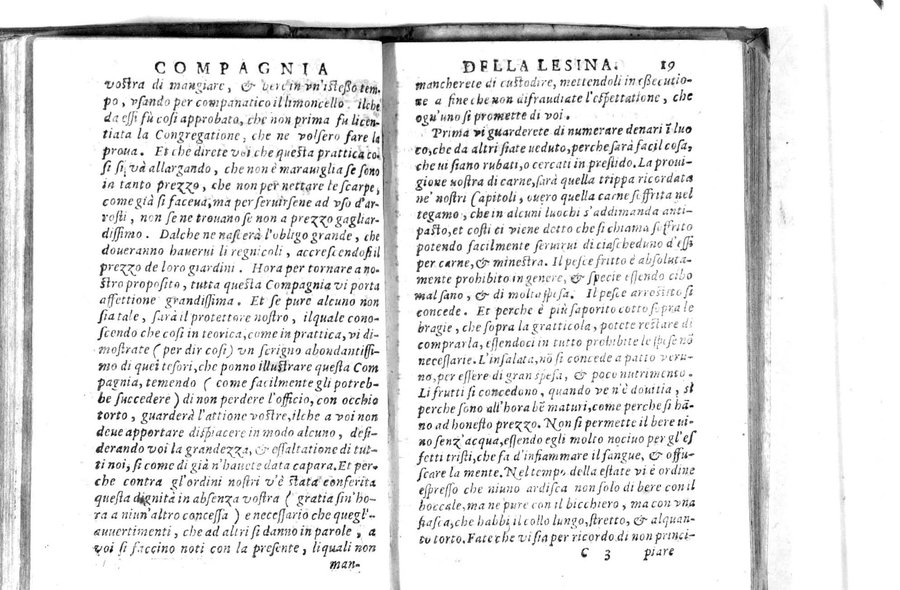 COMPAGNIA
vostra di mangiare, & bere in vn'istesso tem-
po, vsando per companatico il limoncello ilche
da essi fù cosi approbato, che non prima fu licen-
tiata la Congregatione, che ne volsero fare la
proua. Et che direte voi che questa prattica co-
si si và allargando, che non è marauiglia se sono
in tanto prezzo, che non per nettare le scarpe,
come già si faceua, ma per seruirsene ad vso d'ar-
rosti, non se ne trouano se non a prezzo gagliar-
dissimo. Dalche ne nascerà l'obligo grande, che
doueranno hauerui li regnicoli, accrescendosi il
prezzo de loro giardini. Hora per tornare a no-
stro proposito, tutta questa Compagnia vi porta
affettione grandissima. Et se pure alcuno non
sia tale, sarà il protettore nostro, ilquale cono-
scendo che cosi in teorica, come in prattica, vi di-
mostrate (per dir cosi) vn scrigno abondantissi-
mo di quei tesori, che ponno illustrare questa Com
pagnia, temendo (come facilmente gli potreb-
be succedere) di non perdere l'officio, con occhio
torto, guarderà l'attione vostre, ilche a voi non
deue apportare dispiacere in modo alcuno, desi-
derando voi la grandezza, & essaltatione di tut-
ti noi, si come di già n'hauete data capara. Et per-
che contra gl'ordini nostri v'è stata conferita
questa dignità in absenza vostra (gratia sin'ho-
ra a niun'altro concessa) e necessario che quegl'-
auuertimenti, che ad altri si danno in parole, a
voi si faccino noti con la presente, li quali non
man-
DELLA LESINA. 19
mancherete di custodire, mettendoli in essecutio-
ne a fine che non difraudiate l'espettatione, che
ogu'uno si promette di voi.
Prima vi guarderete di numerare denari ī luo
co, che da altri siate ueduto, perche sarà facil cosa,
che ui siano rubati, o cercati in prestido. La proui-
gione nostra di carne, sarà quella trippa ricordata
ne' nostri Capitoli, ouero quella carne soffrita nel
tegamo, che in alcuni luochi s'addimanda anti-
pasto, et costi ci viene detto che si chiama soffrito
potendo facilmente seruirui di ciascheduno d'essi
per carne, & minestra. Il pesce fritto è absoluta-
mente prohibito in genere, & specie essendo cibo
mal sano, & di molto spesa. Il pesce arrostito si
concede. Et perche è più saporito cotto sopra le
bragie, che sopra la gratticola, potete restare di
comprarla, essendoci in tutto prohibite le spese nō
necessarie. L'insalata, nō si concede a patto veru-
no, per essere di gran spesa, & poco nutrimento.
Li frutti si concedono, quando ve n'è douitia, sì
perche sono all'hora bē maturi, come perche si hā-
no ad honesto prezzo. Non si permette il bere ui-
no senz'acqua, essendo egli molto nociuo per gl'ef
fetti tristi, che fa d'infiammare il sangue, & offu-
scare la mente. Nel tempo della estate vi è ordine
espresso che niuno ardisca non solo di bere con il
boccale, ma ne pure con il bicchiero, ma con vna
fiasca, che habbi il collo lungo, stretto, & alquan-
to torto. Fate che vi sia per ricordo di non princi-
C 3 piare